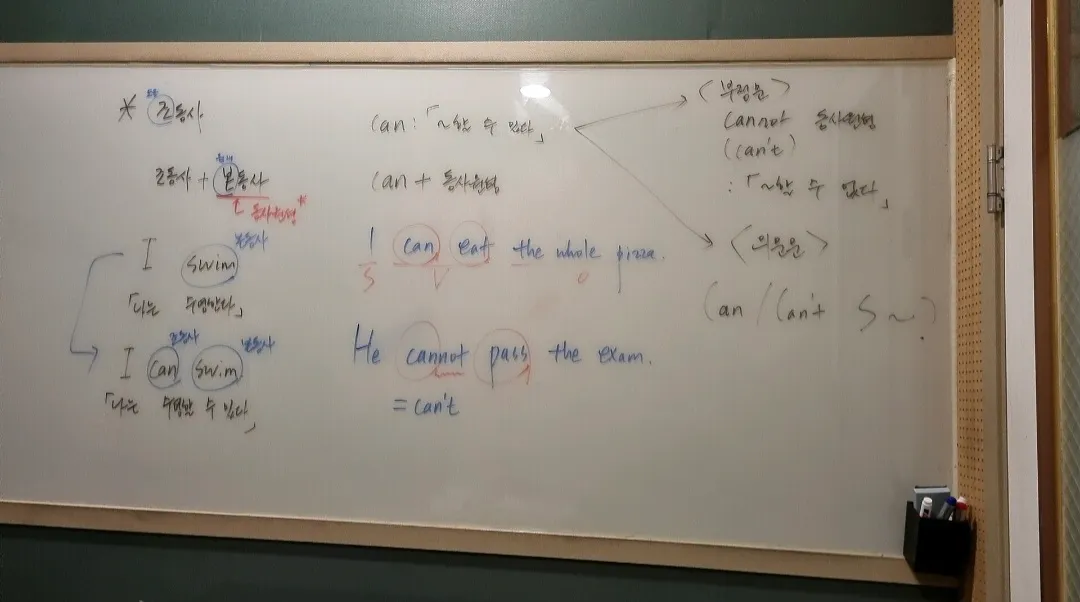 * 조동사
조동사 + 본동사
동사원형*
본동사
I swim
「나는 수영한다」
조동사 본동사
I can swim
「나는 수영할 수 있다」
can : 「~할 수 있다」
can + 동사원형
I can eat the whole pizza.
S V O
He cannot pass the exam.
= can't
<부정문>
cannot 동사원형
(can't)
: 「~할 수 없다」
<의문문>
Can / Can't S ~ ?